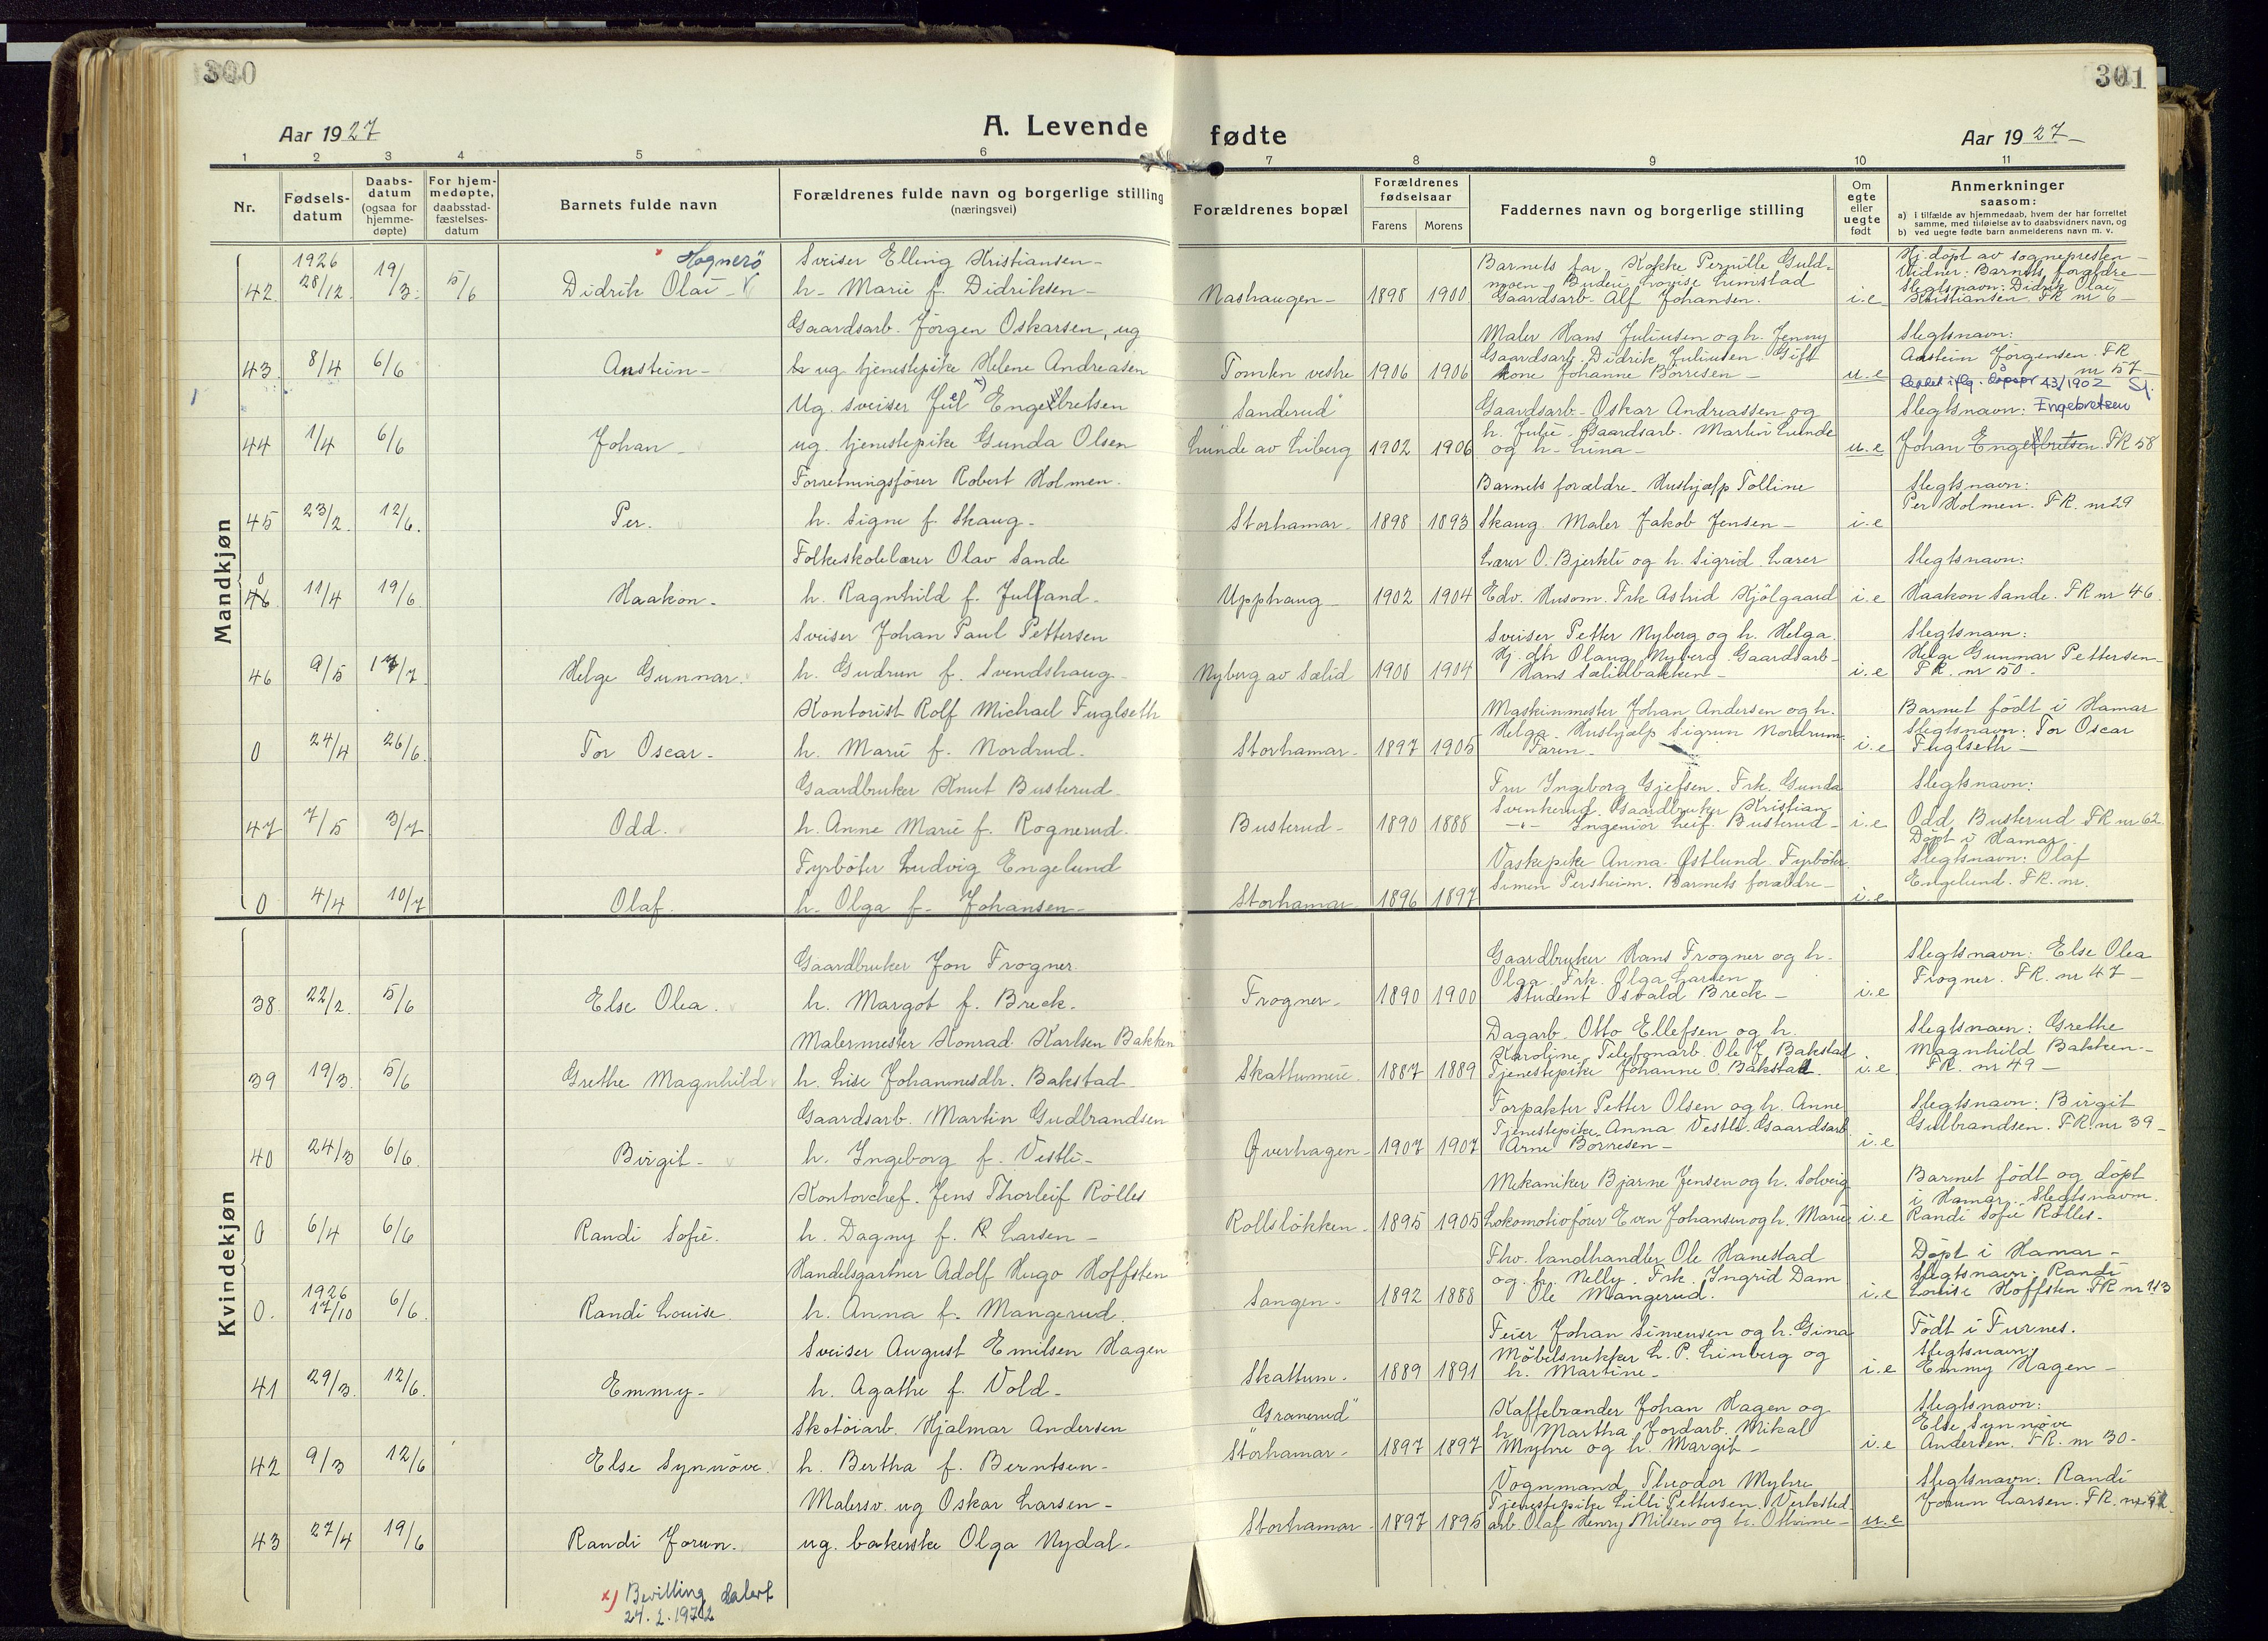 300
301
Aar 1927
A. Levende
fødte
Aar 1927 -
1 2 3 4 5 6 7 8 9 10 11
Nr.
Fødsels-
datum
Daabs-
datum
(ogsaa for
hjemme-
døpte)
For hjem-
medøpte,
daabsstad-
fæstelses-
datum
Barnets fulde navn
Forældrenes fulde navn og borgerlige stilling
(næringsvei)
Forældrenes bopæl
Forældrenes
fødselsaar
Farens Morens
Faddernes navn og borgerlige stilling
Om
egte
eller
uegte
født
Anmerkninger
saasom:
a) i tilfælde av hjemmedaab, hvem der har forrettet
samme, med tilføielse av to daabsvidners navn, og
b) ved uegte fødte barn anmelderens navn m. v.
Mandkjøn
1926
42. 28/12. 19/3. 5/6
x Hognerö
Didrik Olai -
Sveiser Elling Kristiansen -
h. Marie f. Didriksen -
Nashaugen - 1898 1900
Barnets far. Kokke Pernille Guld-
mosen - Budeie Lovise Lumstad
Gaardsarb. Alf Johansen.
i.e
Hj. døpt av sognepresten -
Vidner: Barnets forældre -
Slegtsnavn: Didrik Olai
Kristiansen. FR nr 6 -
43. 8/4 6/6
Anstein -
Gaardsarb. Jörgen Oskarsen, ug
ug tjenestepike Helene Andreasen
Tomten vestre 1906 1906
Maler Hans Juliusen og h. Jenny
Gaardsarb. Didrik Juliusen. Gift
kone Johanne Börresen -
u.e
Slegtsnavn:
Anstein Jörgensen. FR
nr 57 -
44 1/4 6/6
Johan -
Ug. sveiser Juel x) Engebretsen
ug. tjenestepike Gunda Olsen
Sanderud"
Lunde av Liberg 1902 1906
Gaardsarb. Oskar Andreassen og
h. Julie. Gaardsarb. Martin Lunde
og h. Lina -
u.e
43/1902
Slegtsnavn: Engebretsen
Johan Engebretsen. FR 58
45 23/2. 12/6.
Per.
Forretningsfører Robert Holmen.
h. Signe f. Skaug -
Storhamar - 1898 1893
Barnets forældre. Hushjælp Tolline
Skaug. Maler Jakob Jensen -
i.e
Slegtsnavn:
Per Holmen. FR. nr 29
0
46. 11/4 19/6
Haakon -
Folkeskolelærer Olav Sande
h. Ragnhild f. Julland -
Upphaug - 1902 1904
Lærer O. Bjerkli og h. Sigrid. Lærer
Edv. Husom. Frk Astrid Kjölgaard
i.e
Slegtsnavn:
Haakon Sande. FR nr 46.
46 9/5 17/7
Helge Gunnar.
Sveiser Johan Paul Pettersen
h. Gudrun f. Svendshaug -
Nyberg av Sælid 1900 1904
Sveiser Petter Nyberg og h. Helga.
Hj. dtr Olaug Nyberg. Gaardsarb -
Hans Sælidbakken -
i.e
Slegtsnavn:
Helge Gunnar Pettersen -
FR. nr 50.
0 24/4 26/6.
Tor Oscar -
Kontorist Rolf Michael Fuglseth
h. Marie f. Nordrud.
Storhamar - 1897 1905
Maskinmester Johan Andersen og h.
Helga. Hushjælp Sigrun Nordrum
Faren -
i.e
Barnet født i Hamar
Slegtsnavn: Tor Oscar
Fuglseth -
47 7/5 3/7
Odd.
Gaardbruker Knut Busterud.
h. Anne Marie f. Rognerud.
Busterud - 1890 1888
Fru Ingeborg Gjefsen. Frk. Gunda
Svenkerud. Gaardbruker Kristian
- " - Ingeniör Leif Busterud -
i.e
Slegtsnavn:
Odd Busterud FR nr 62.
0 4/4 10/7
Olaf.
Fyrböter Ludvig Engelund
h. Olga f. Johansen -
Storhamar - 1896 1897
Vaskepike Anna Østlund. Fyrböter
Simen Persheim. Barnets forældre -
i.e
Döpt i Hamar
Slegtsnavn: Olaf
Engelund. FR. nr.
Kvindekjøn
38. 22/2. 5/6
Else Olea.
Gaardbruker Jon Frogner.
h. Margot f. Breck.
Frogner - 1890 1900
Gaardbruker Hans Frogner og h.
Olga. Frk. Olga Larsen
Student Osvald Breck -
i.e
Slegtsnavn: Else Olea
Frogner. FR. nr 47 -
39 19/3. 5/6
Grethe Magnhild
Malermester Konrad Karlsen Bakken
h. Lise Johannesdtr. Bakstad
Skattumeie. 1887 1889
Dagarb. Otto Ellefsen og h.
Karoline. Telefonarb. Ole J. Bakstad
Tjenestepike Johanne O. Bakstad.
i.e
Slegtsnavn: Grethe
Magnhild Bakken -
FR. nr 49 -
40 24/3 6/6
Birgit -
Gaardsarb. Martin Gudbrandsen
h. Ingeborg f. Vestli -
Øverhagen - 1907 1907
Forpakter Petter Olsen og h. Anne
Tjenestepike Anna Vestli. Gaardsarb
Arne Börresen -
i.e
Slegtsnavn: Birgit
Gulbrandsen. FR. nr 39 -
0 6/4 6/6
Randi Sofie.
Kontorchef. Jens Thorleif Rölles
h. Dagny f. R Larsen -
Rollslökken - 1895 1905
Mekaniker Bjarne Jensen og h. Solveig
Lokomotivförer Even Johansen og h. Marie
i.e
Barnet født og döpt
i Hamar. Slegtsnavn.
Randi Sofie Rölles -
1926
0. 17/10 6/6.
Randi Louise.
Handelsgartner Adolf Hugo Hoffsten
h. Anna f. Mangerud.
Sangen - 1892 1888
Fhv. landhandler Ole Hanestad
og h. Nelly. Frk. Ingrid Dam
Ole Mangerud.
i.e
Döpt i Hamar -
Slegtsnavn: Randi
Louise Hoffsten FR nr 113
41 29/3. 12/6.
Emmy -
Sveiser August Emilsen Hagen
h. Agathe f. Vold -
Skattum - 1889 1891
Feier Johan Simensen og h. Gina
Möbelsnekker L. P. Linberg og
h. Martine -
i.e
Födt i Furnes.
Slegtsnavn:
Emmy Hagen -
42 9/3 12/6
Else Synnöve.
Skotöiarb. Hjalmar Andersen
h. Bertha f. Berntsen -
"Granerud"
Storhamar - 1897 1897
Kaffebrænder Johan Hagen og
h. Martha. Jordarb. Mikal
Myhre og h. Margit -
i.e
Slegtsnavn:
Else Synnöve
Andersen. FR. nr 30 -
43 27/4 19/6
Randi Jorun.
Malersv. ug Oskar Larsen -
ug. bakerske Olga Nydal -
Storhamar - 1897 1895
Vognmand Theodor Myhre
Tjenestepike Lilli Pettersen. Verksted
arb. Olaf Henry Nilsen og h. Othine -
u.e
Slegtsnavn: Randi
Jorun Larsen. FR. nr
x) Bevilling datert
24.2.1972